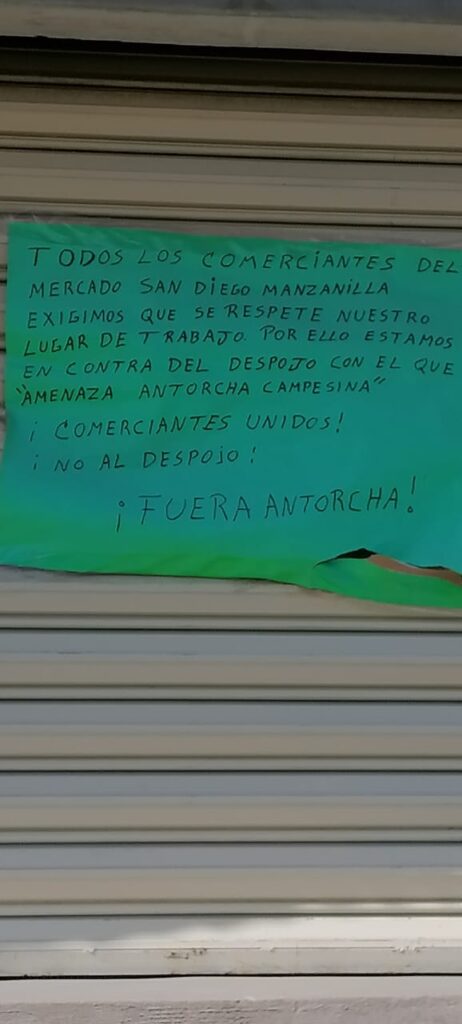 TODOS LOS COMERCIANTES DEL
MERCADO SAN DIEGO MANZANILLA
EXIGIMOS QUE SE RESPETE NUESTRO
LUGAR DE TRABAJO. POR ELLO ESTAMOS
EN CONTRA DEL DESPOJO CON EL QUE
"AMENAZA ANTORCHA CAMPESINA"
¡COMERCIANTES UNIDOS!
¡NO AL DESPOJO!
¡FUERA ANTORCHA!